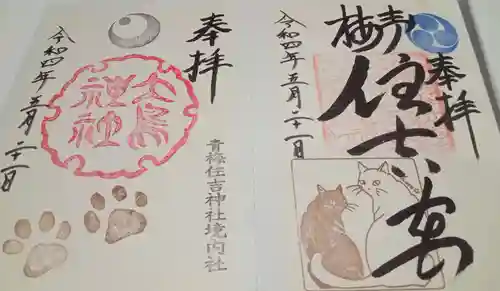 奉拝
青梅
住吉宮
令和四年五月二十一日
奉拝
大鳥神社
青梅住吉神社境内社
令和四年五月二十一日